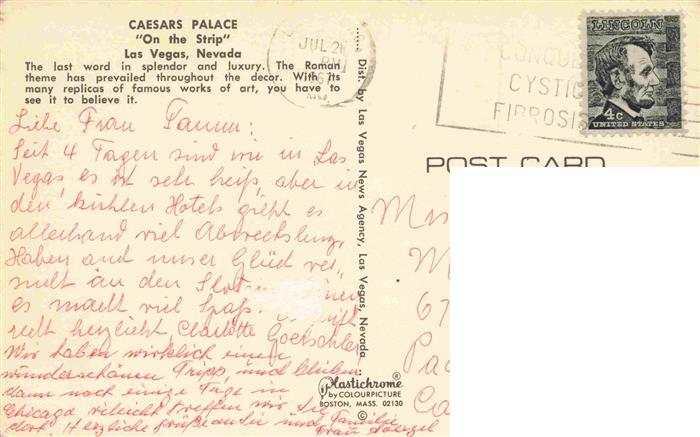 CAESARS PALACE
"On the Strip"
Las Vegas, Nevada
The last word in splendor and luxury. The Roman
theme has prevailed throughout the decor. With its
many replicas of famous works of art, you have to
see it to believe it.
Liebe Frau
Seit 4 Tagen sind wir in Las
Vegas, es ist sehr heiß, aber in
den kühlen Hotels gieht es
allerhand viel Abwechslung,
Haben auch unser Glück ver„
sucht an den Slot
es macht viel Spaß.
recht herzlichst Charlotte
Wir haben wirklich einen
wunderschönen Tripp, und bleiben
dann noch einige Tage in
Chicago vieleicht treffen wir Sie
dort. Herzliche Grüße an Sie und Familie
Frau
Dist. by Las Vegas News Agency, Las Vegas, Nevada
Plastichrome®
by COLOURPICTURE
BOSTON, MASS. 02130
©
JUL 2
PM
CONQUE
CYSTIC
FIBROSIS
LINCOLN
4c
UNITED STATES
POST CARD
M
67
Pa
Ca